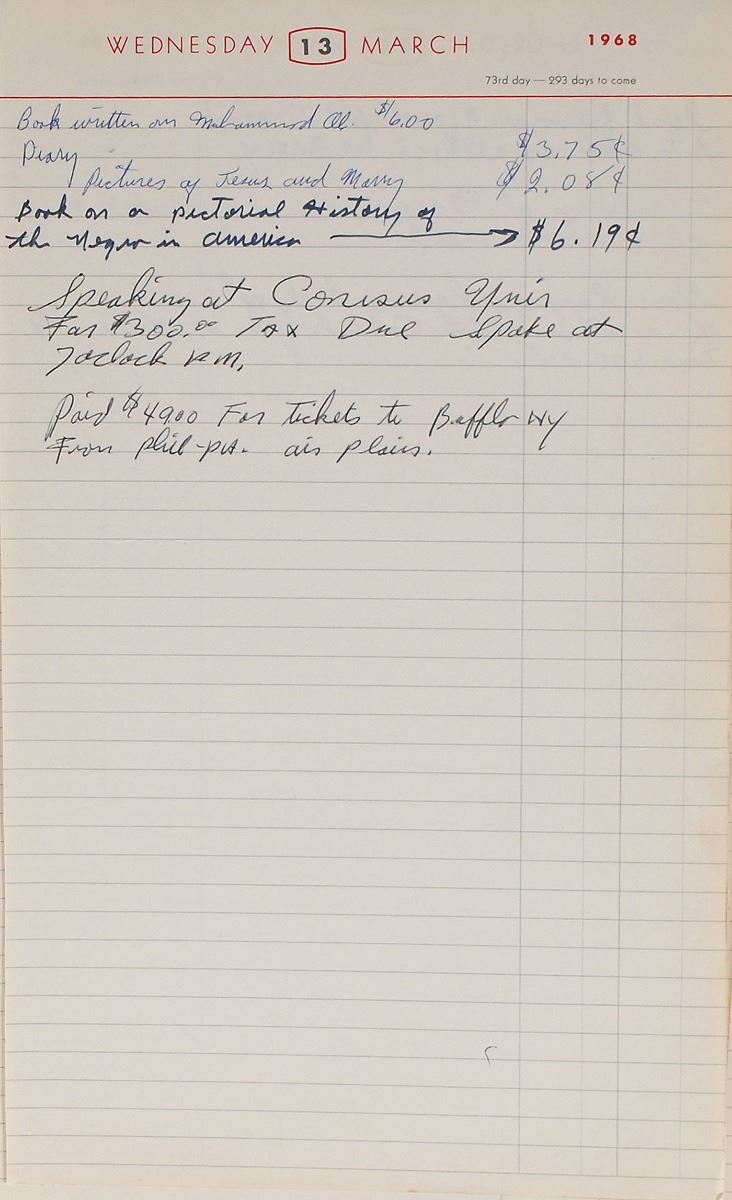 WEDNESDAY 13 MARCH 1968
73rd day — 293 days to come
Book written on Muhammad Ali. $6.00
Diary $3.75¢
Pictures of Jesus and Marry $2.08¢
Book on a pictorial History of
the Negro in america $6.19¢
Speaking at Conisus Yuir
For $300.00 Tax Due Spoke at
7oclock P.M.
Paid $49.00 For tickets to Bufflo NY
From phil-pa. air plain.